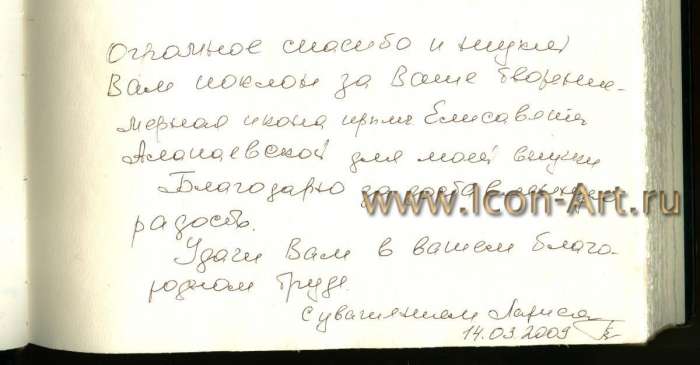 Огромное спасибо и низкий
Вам поклон за Ваше творение-
мерная икона прмч. Елисавета
Алапаевской для моей внучки
Благодарю за доставленную
www.Icon-Art.ru
радость.
Удачи Вам в вашем благо-
родном труде.
С уважением Лариса
14.03.2009